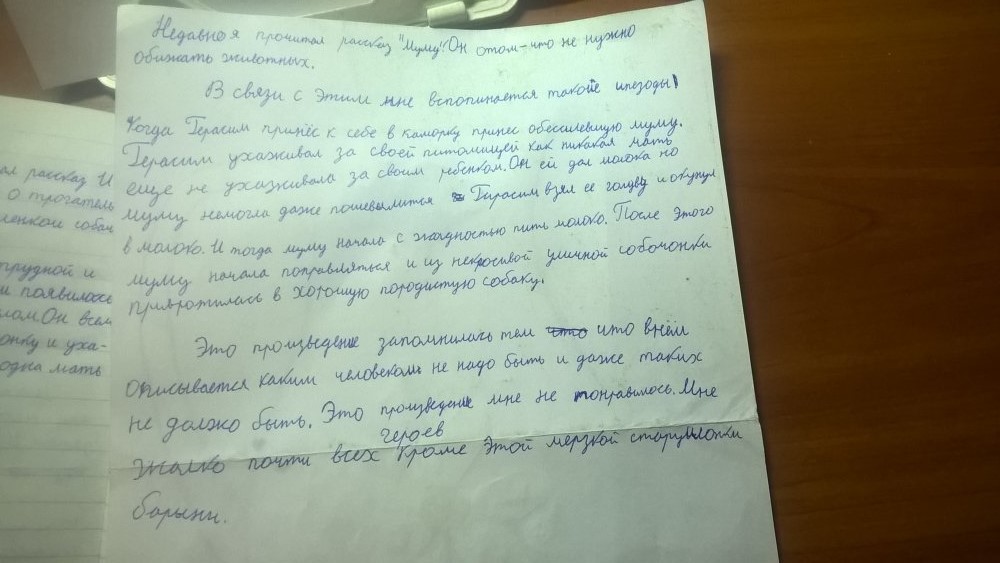 Недавно я прочитал рассказ "Муму". Он отом-что не нужно
обижать животных.
В связи с этим мне вспопинается такойе ипезоды!
Когда Герасим принёс к себе в каморку принес обессилевшую муму.
Герасим ухаживал за своей питомицей как никакая мать
еще не ухаживала за своим ребенком. Он ей дал молока но
муму немогла даже пошевылится Герасим взял ее голову и окунул
в молоко. И тогда муму начала с жадностью пить молоко. После этого
муму начала поправляться и из некросивой уличной собочонки
привротилась в хорошую породистую собаку.
Это произведение запомнилась тем что внём
описывается каким человеком не надо быть и даже таких
не должо быть. Это произведение мне не понравилось. Мне
героев
жалко почти всех кроме этой мерзкой старушонки
барыни.
ал рассказ И
о трогатель
ленкой собач
трудной и
и появилось
лом. Он всем
онку и уха-
одна мать